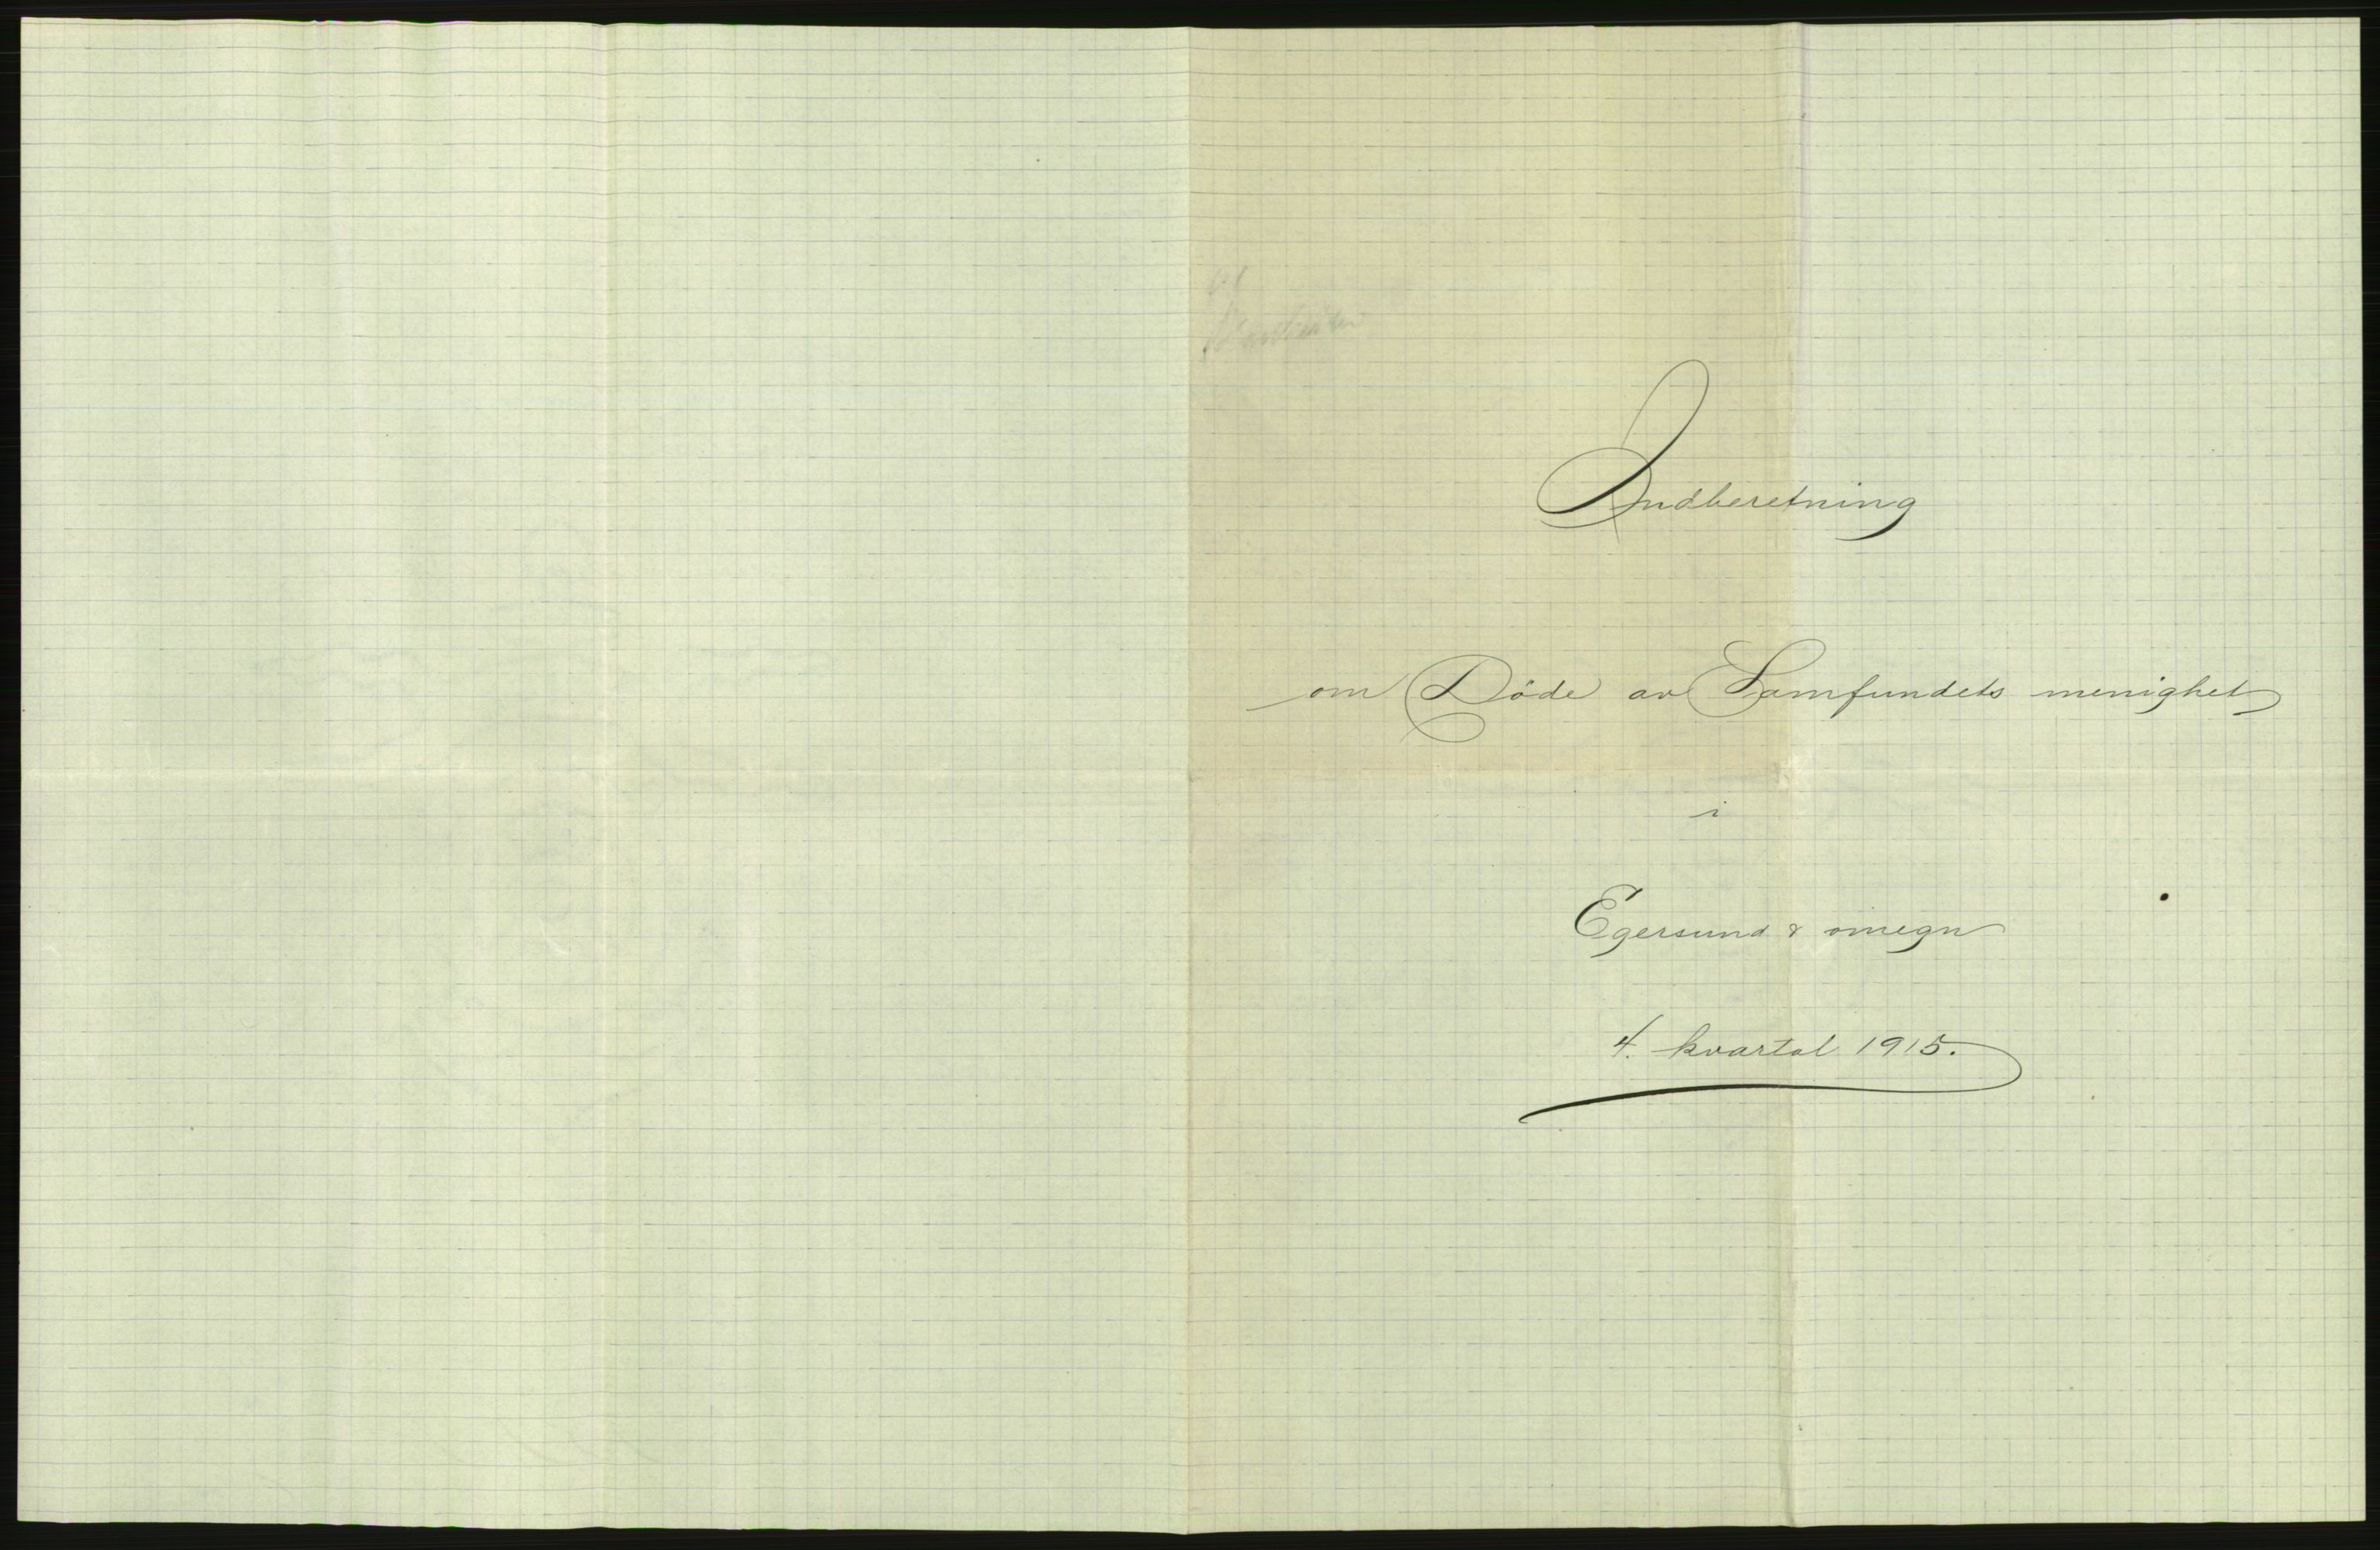 Indberetning
om Döde av Samfundets menighet
i
Egersund & omegn
4. kvartal 1915.